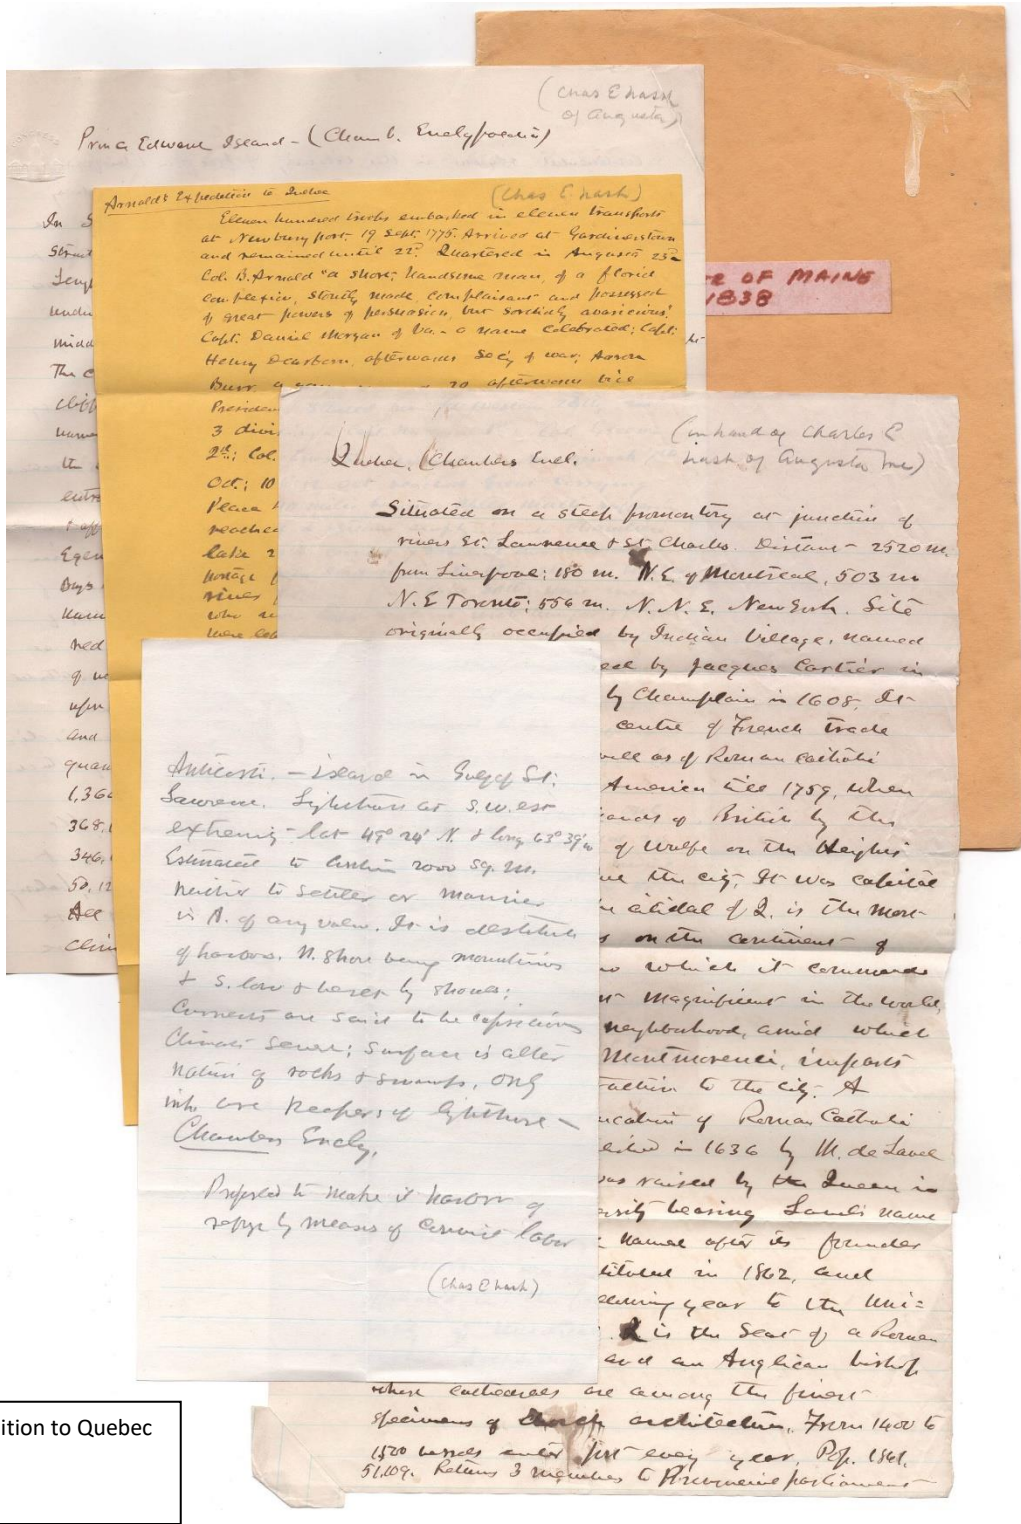 (Chas E Nash
of Augusta)
Prince Edward Island - (Cham b. Encly
In S
Strait
Leng
midd
The C
the
entr
Egen
Bays
Nam
red
of
upon
and
quan
1,36
368,
346,
50,12
All
clim
Arnold's Expedition to Quebec
(Chas E. Nash)
Eleven hundred troops embarked in eleven transports
at Newburyport, 19 Sept. 1775. Arrived at Gardinerstown
and remained until 22d. Quartered in Augusta 23d
Col. B. Arnold "a short, handsome man, of a florid
complexion, stoutly made, complaisant and possessed
of great powers of persuasion, but sordidly avaricious.
Capt. Daniel Morgan of Va. - a name celebrated; Capt.
Henry Dearborn, afterwards Sec'y of war; Aaron
Burr, a 20 afterwards vice
Presiden
3 divi
2d; Col.
Oct.; 10
Place
reache
lake 2
portage
rives
who
were
R OF MAINE
1838
(in hand of Charles E
Nash of Augusta Me)
Quebec. (Chambers Encl.
Situated on a steep promontory at junction of
rivers St. Lawrence & St Charles. Distant - 2520 m.
from Liverpool; 180 m. N.E. of Montreal, 503 m
N.E Toronto; 556 m. N.N.E. New York. Site
originally occupied by Indian Village, named
ed by Jacques Cartier in
by Champlain in 1608. It
centre of French trade
well as of Roman Catholic
America till 1759, when
ands of British by the
of Wolfe on the Heights
the city. It was capital
citidal of Q. is the most
s on the continent of
which it commands
magnificent in the world,
neighborhood, amid which
Montmorenci, imparts
action to the city. A
ucation of Roman Catholic
in 1636 by M. de Laval
was raised by the Queen in
ersity bearing Laval's name
named after its founder
tituted in 1862, and
year to the Uni=
Q is the Seat of a Roman
and an Anglican bishop
whose cathedrals are among the finest
specimens of church architecture. From 1400 to
1500 vessels enter port every year. Pop. 1861.
51,109. Returns 3 members to parliament
Anticosti. - island in Gulf of St.
Lawrence. Lighthouse at S.W. est
extremity - lat 49° 24' N. & long 63° 39' w
Estimated to contain 2000 sq. m.
Neither to settler or mariner
is A. of any value. It is destitute
of harbors. N. Shore being mountinous
& S. low & beset by shoals;
currents are said to be capricious
Climate severe; surface is alter
nation of rocks & swamps. Only
are keepers of lighthouse -
Chambers Encly.
Proposed to make it harbor of
refuge by means of convict labor
(Chas E Nash)
ition to Quebec